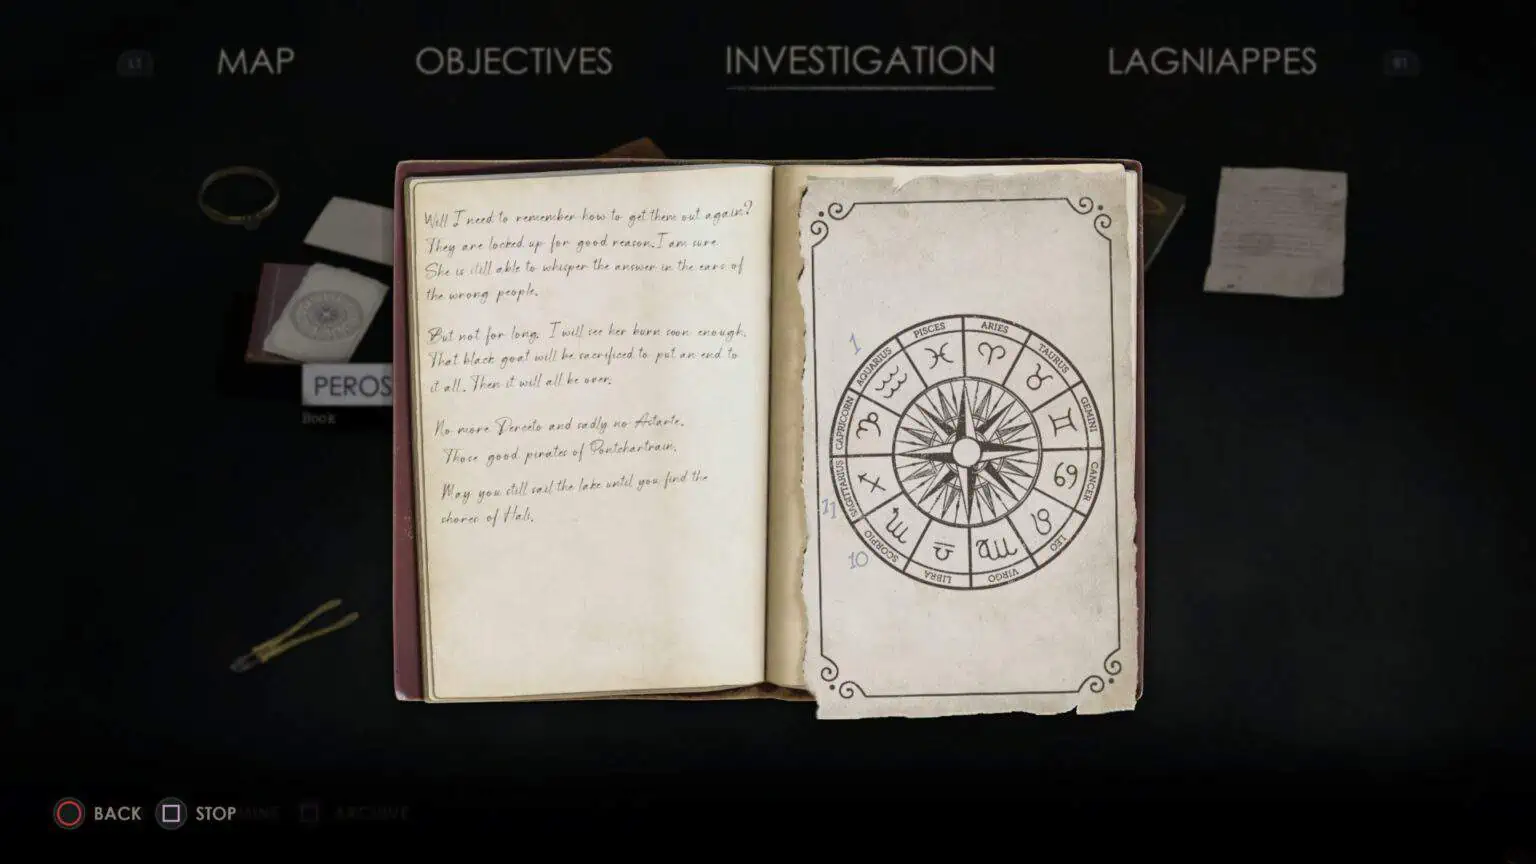 L1
MAP
OBJECTIVES
INVESTIGATION
LAGNIAPPES
R1
Well I need to remember how to get them out again?
They are locked up for good reason. I am sure
She is still able to whisper the answer in the ears of
the wrong people.
But not for long. I will see her burn soon enough.
That black goat will be sacrificed to put an end to
it all. Then it will all be over.
No more Perceto and sadly no Astarte.
Those good pirates of Pontchartrain.
May you still sail the lake until you find the
shores of Hali.
1
PISCES
ARIES
TAURUS
GEMINI
CANCER
LEO
VIRGO
LIBRA
SCORPIO
SAGITTARIUS
CAPRICORN
AQUARIUS
11
10
PEROS
Book
BACK
STOP
ARCHIVE